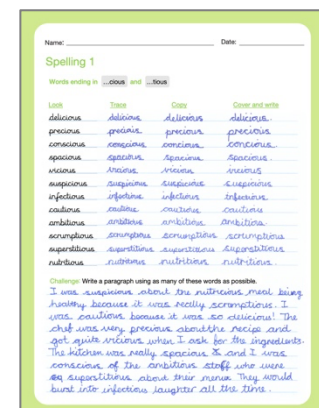 Name: Date:
Spelling 1
Words ending in ...cious and ...tious
Look Trace Copy Cover and write
delicious delicious delicious delicious.
precious precious precious precious
conscious conscious concious concious.
spacious spacious spacious spacious.
vicious vicious vicious vicious
suspicious suspicious suspicious suspicious
infectious infectious infectious infectious.
cautious cautious cautious cautious
ambitious ambitious ambitious ambitious.
scrumptious scrumptious scrumptious scrumptious
superstitious superstitious superstitious superstitious
nutritious nutritious nutritious nutritious.
Challenge: Write a paragraph using as many of these words as possible.
I was suspicious about the nutricious meal being
healthy because it was really scromptious. I
was cautious because it was so delicious! The
chef was very precious about the recipe and
got quite vicious when I ask for the ingredients.
The kitchen was really spacious & and I was
conscious of the ambitious staff who were
superstitious about their menu. They would
burst into infectious laughter all the time.